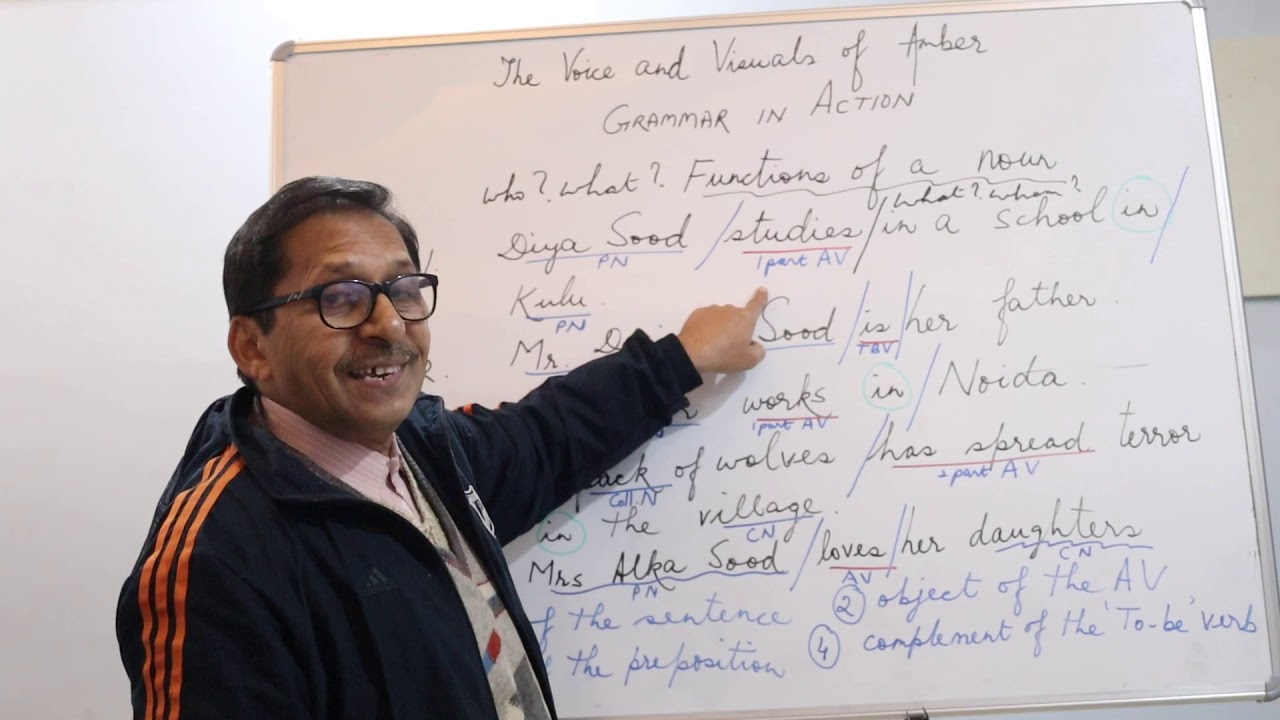 The Voice and Visuals of Amber
GRAMMAR IN ACTION
who? what? Functions of a noun
what? whom?
Diya Sood / studies / in a school in /
PN 1 part AV
Kulu.
PN
Mr. Sood / is / her father.
TBV
works in / Noida.
1 part AV
ack of wolves / has spread terror
Coll.N 2 part AV
in the village.
CN
Mrs Alka Sood / loves / her daughters
PN AV CN
f the sentence ② object of the AV
the preposition ④ complement of the 'To-be' verb
adidas